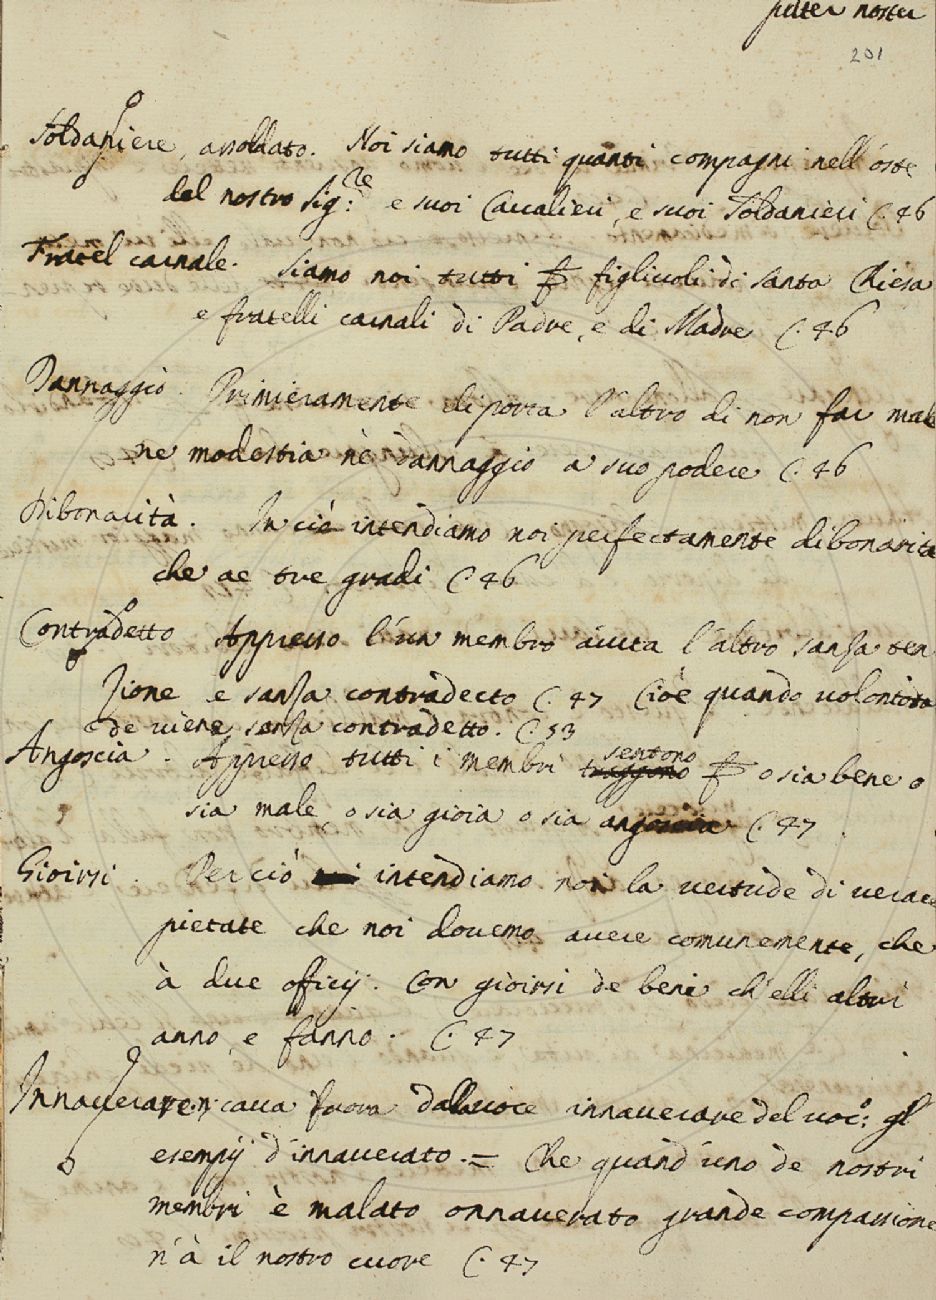 pater noster
201
Soldaniere, assoldato. Noi siamo tutti quanti compagni nell'oste
del nostro Sig:re e suoi Cavalieri, e suoi Soldanieri C. 46
Fratel carnale. Siamo noi tutti figliuoli di Santa Chiesa
e fratelli carnali di Padre, e di Madre C. 46
Dannaggio. Primieramente diporta l'altro di non far male
ne modestia nè dannaggio a suo podere C. 46
Dibonarità. In ciò intendiamo noi perfectamente dibonarità
che ae tre gradi C. 46
Contradetto Appresso l'un membro aiuta l'altro sanza ten
zione e sanza contradecto C. 47 Cioè quando volontero
de viene sanza contradetto. C. 53
Angoscia. Appresso tutti i membri sentono o sia bene o
sia male, o sia gioia o sia angoscia C. 47
Gioirsi. Per ciò intendiamo noi la vertude di verace
pietate che noi dovemo avere comunemente, che
à due officij. Con gioirsi de beni ch'elli altri
anno, e fanno. C. 47
Innaverare cava fuora dalla voce innaverare del voc: gl
esempij d'innaverato. = Che quand'uno de nostri
membri è malato o nnaverato grande compassione
n'à il nostro cuore C. 47